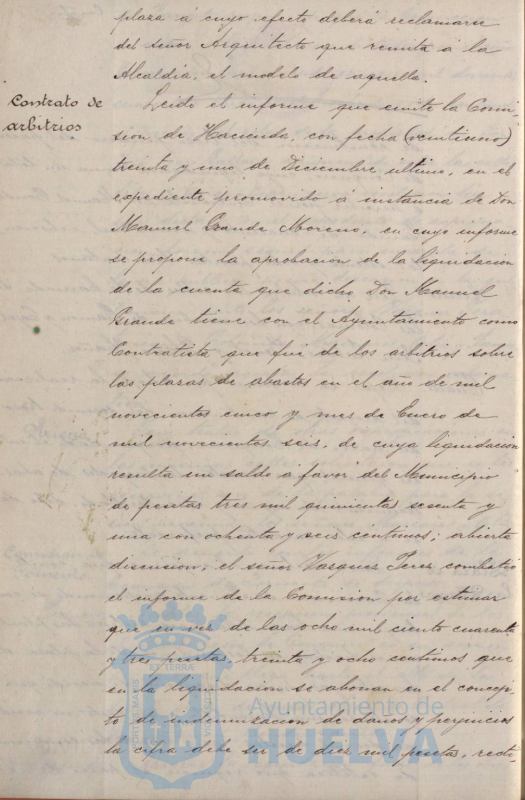 plaza á cuyo efecto deberá reclamarse
del señor Arquitecto que remita á la
Alcaldia, el modelo de aquella.
Contrato de
arbitrios
Leido el informe que emite la Comi-
sion de Hacienda, con fecha (veintiuno)
treinta y uno de Diciembre último, en el
expediente promovido á instancia de Don
Manuel Grande Moreno, en cuyo informe
se propone la aprobacion de la liquidacion
de la cuenta que dicho Don Manuel
Grande tiene con el Ayuntamiento como
Contratista que fué de los arbitrios sobre
las plazas de abastos en el año de mil
novecientos cinco y mes de Enero de
mil novecientos seis, de cuya liquidacion
resulta un saldo á favor del Municipio
de pesetas tres mil quinientas sesenta y
una con ochenta y seis céntimos; abierta
discusion, el señor Vasques Perez combatió
el informe de la Comision por estimar
que en vez de las ocho mil ciento cuarenta
y tres pesetas, treinta y ocho céntimos que
en la liquidacion se abonan en el concep-
to de indemnizacion de daños y perjuicios
la cifra debe ser de diez mil pesetas, recti-
Ayuntamiento de
HUELVA